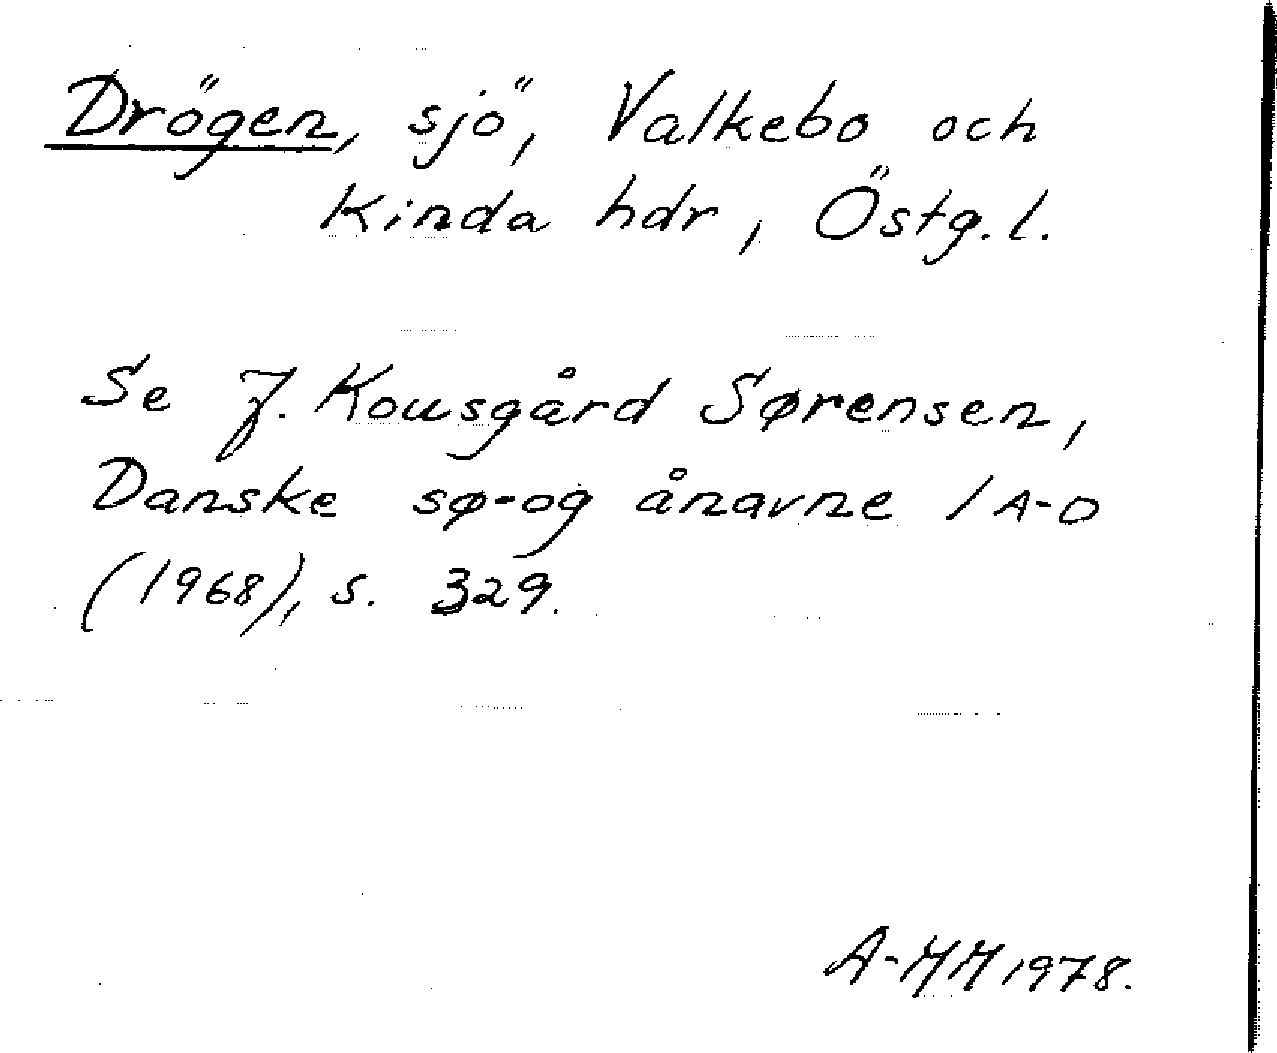 Drögen, sjö, Valkebo och
Kinda hdr, Östg.l.
Se J. Kousgård Sørensen,
Danske sø- og ånavne 1 A-D
(1968), s. 329.
A-MM 1978.